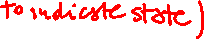 to indicate state)